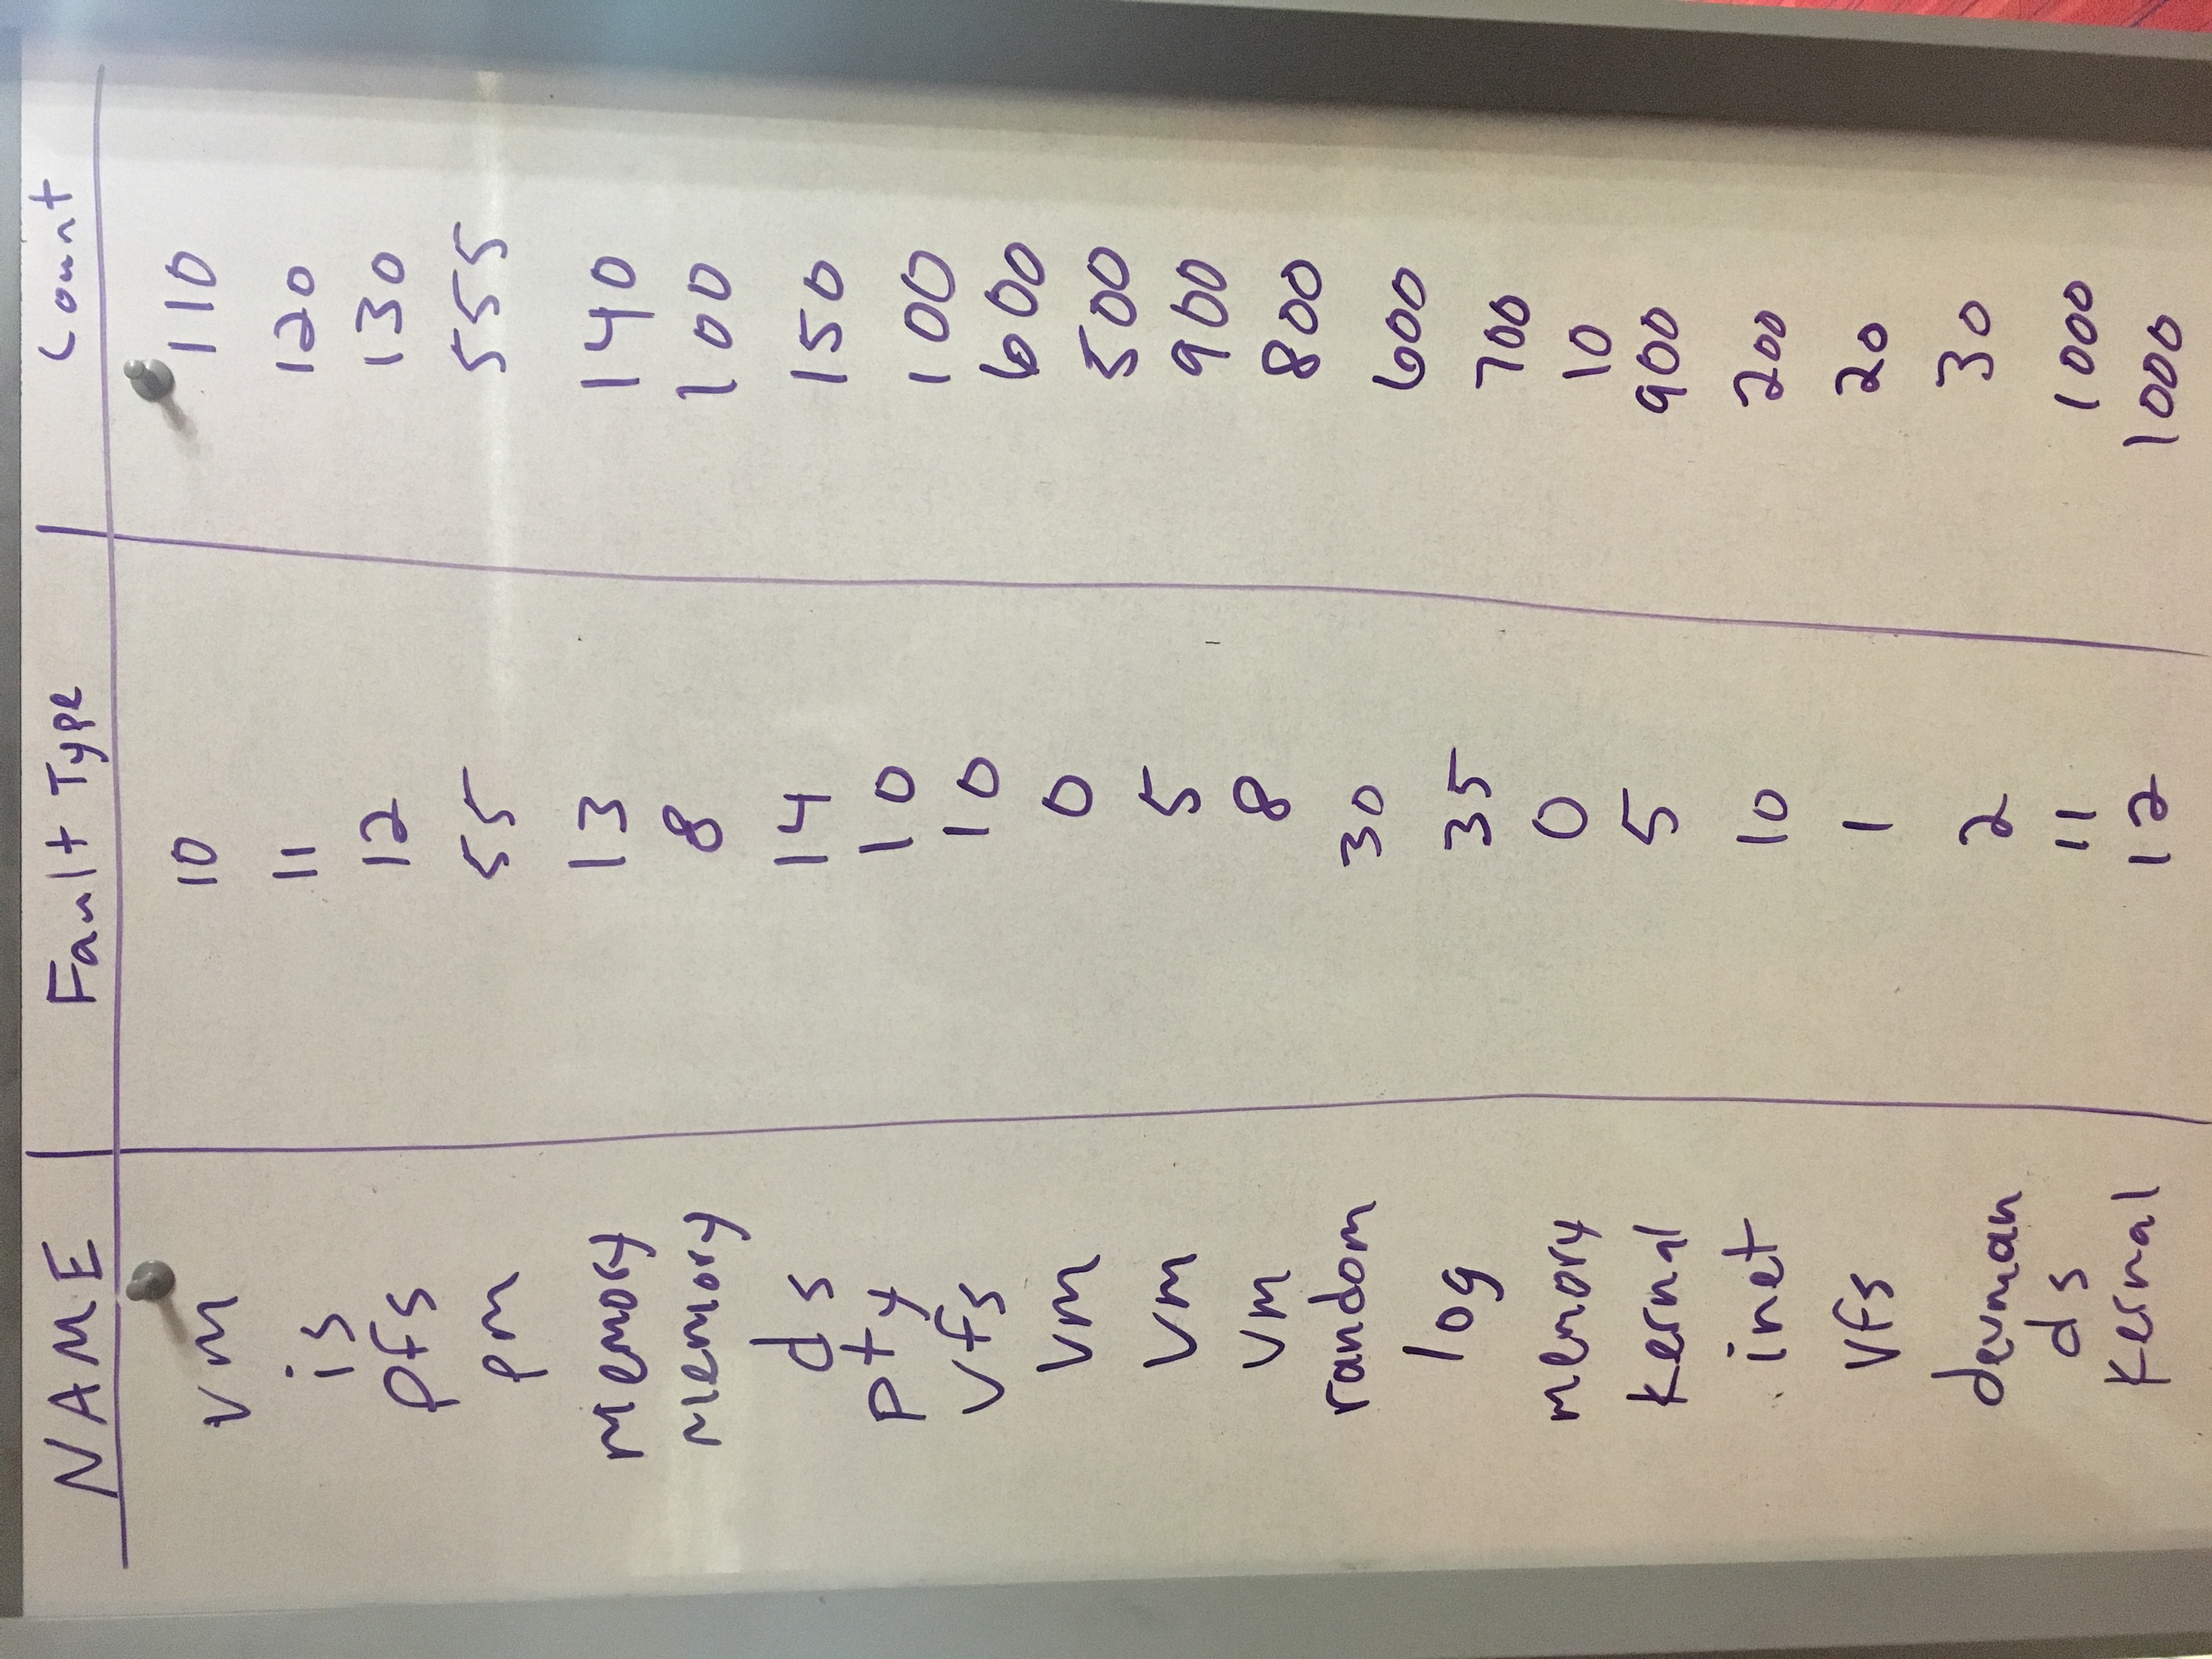 NAME Fault Type Count
vm 10 110
is 11 120
pfs 12 130
pm 55 555
memory 13 140
memory 8 100
ds 14 150
pty 10 100
vfs 10 600
vm 0 500
vm 5 900
vm 8 800
random 30 600
log 35 700
memory 0 10
kernal 5 900
inet 10 200
vfs 1 20
devman 2 30
ds 11 1000
kernal 12 1000